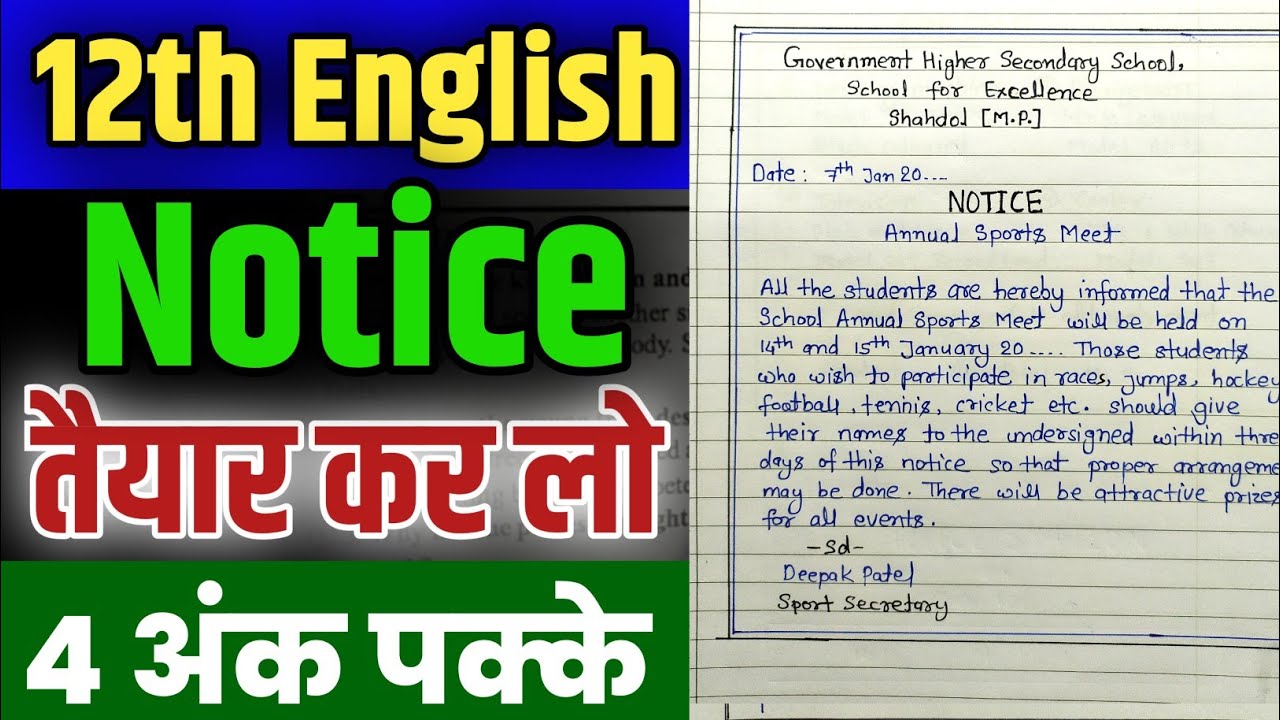 12th English
Notice
तैयार कर लो
4 अंक पक्के
Government Higher Secondary School,
School for Excellence
Shahdol [M.P.]
Date: 7th Jan 20....
NOTICE
Annual Sports Meet
All the students are hereby informed that the
School Annual Sports Meet will be held on
14th and 15th January 20.... Those students
who wish to participate in races, jumps, hockey
football, tennis, cricket etc. should give
their names to the undersigned within thre
days of this notice so that proper arrangeme
may be done. There will be attractive prizes
for all events.
-Sd-
Deepak Patel
Sport Secretary